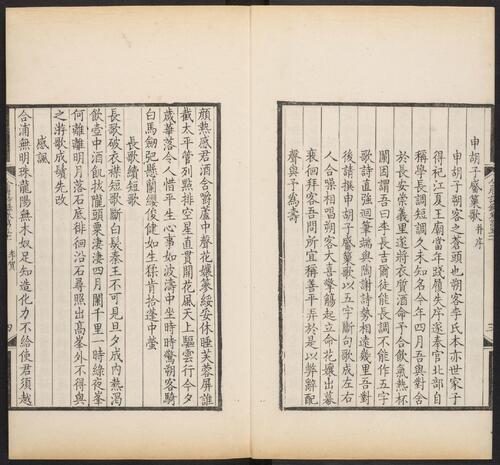 申胡子觱篥歌 并序
申胡子朔客之蒼頭也朔客李氏本亦世家子
得祀江夏王廟當年踐履失序遂奉官北部自
稱學長調短調久未知名今年四月吾與對舍
於長安崇義里遂將衣質酒命予合飲氣熱杯
闌因謂吾曰李長吉爾徒能長調不能作五字
歌詩直強迴筆端與陶謝詩勢相遠幾里吾對
後請撰申胡子觱篥歌以五字斷句歌成左右
人合噪相唱朔客大喜擎觴起立命花孃出幕
裵徊拜客吾問所宜稱善平弄於是以弊辭配
聲與予為壽
顔熱感君酒含嚼蘆中聲花孃篸綏妥休睡芙蓉屏誰
截太平管列㸃排空星直貫開花風天上驅雲行今夕
歲華落令人惜平生心事如波濤中坐時時驚朔客騎
白馬劒弝懸蘭纓俊健如生猱肯拾蓬中螢
長歌續短歌
長歌破衣襟短歌斷白髮秦王不可見旦夕成内熱渴
飲壺中酒飢拔隴頭粟淒淒四月闌千里一時緑夜峯
何離離明月落石底徘徊沿石尋照出高峯外不得與
之遊歌成鬢先改
感諷
合浦無明珠龍陽無木奴足知造化力不給使君須越